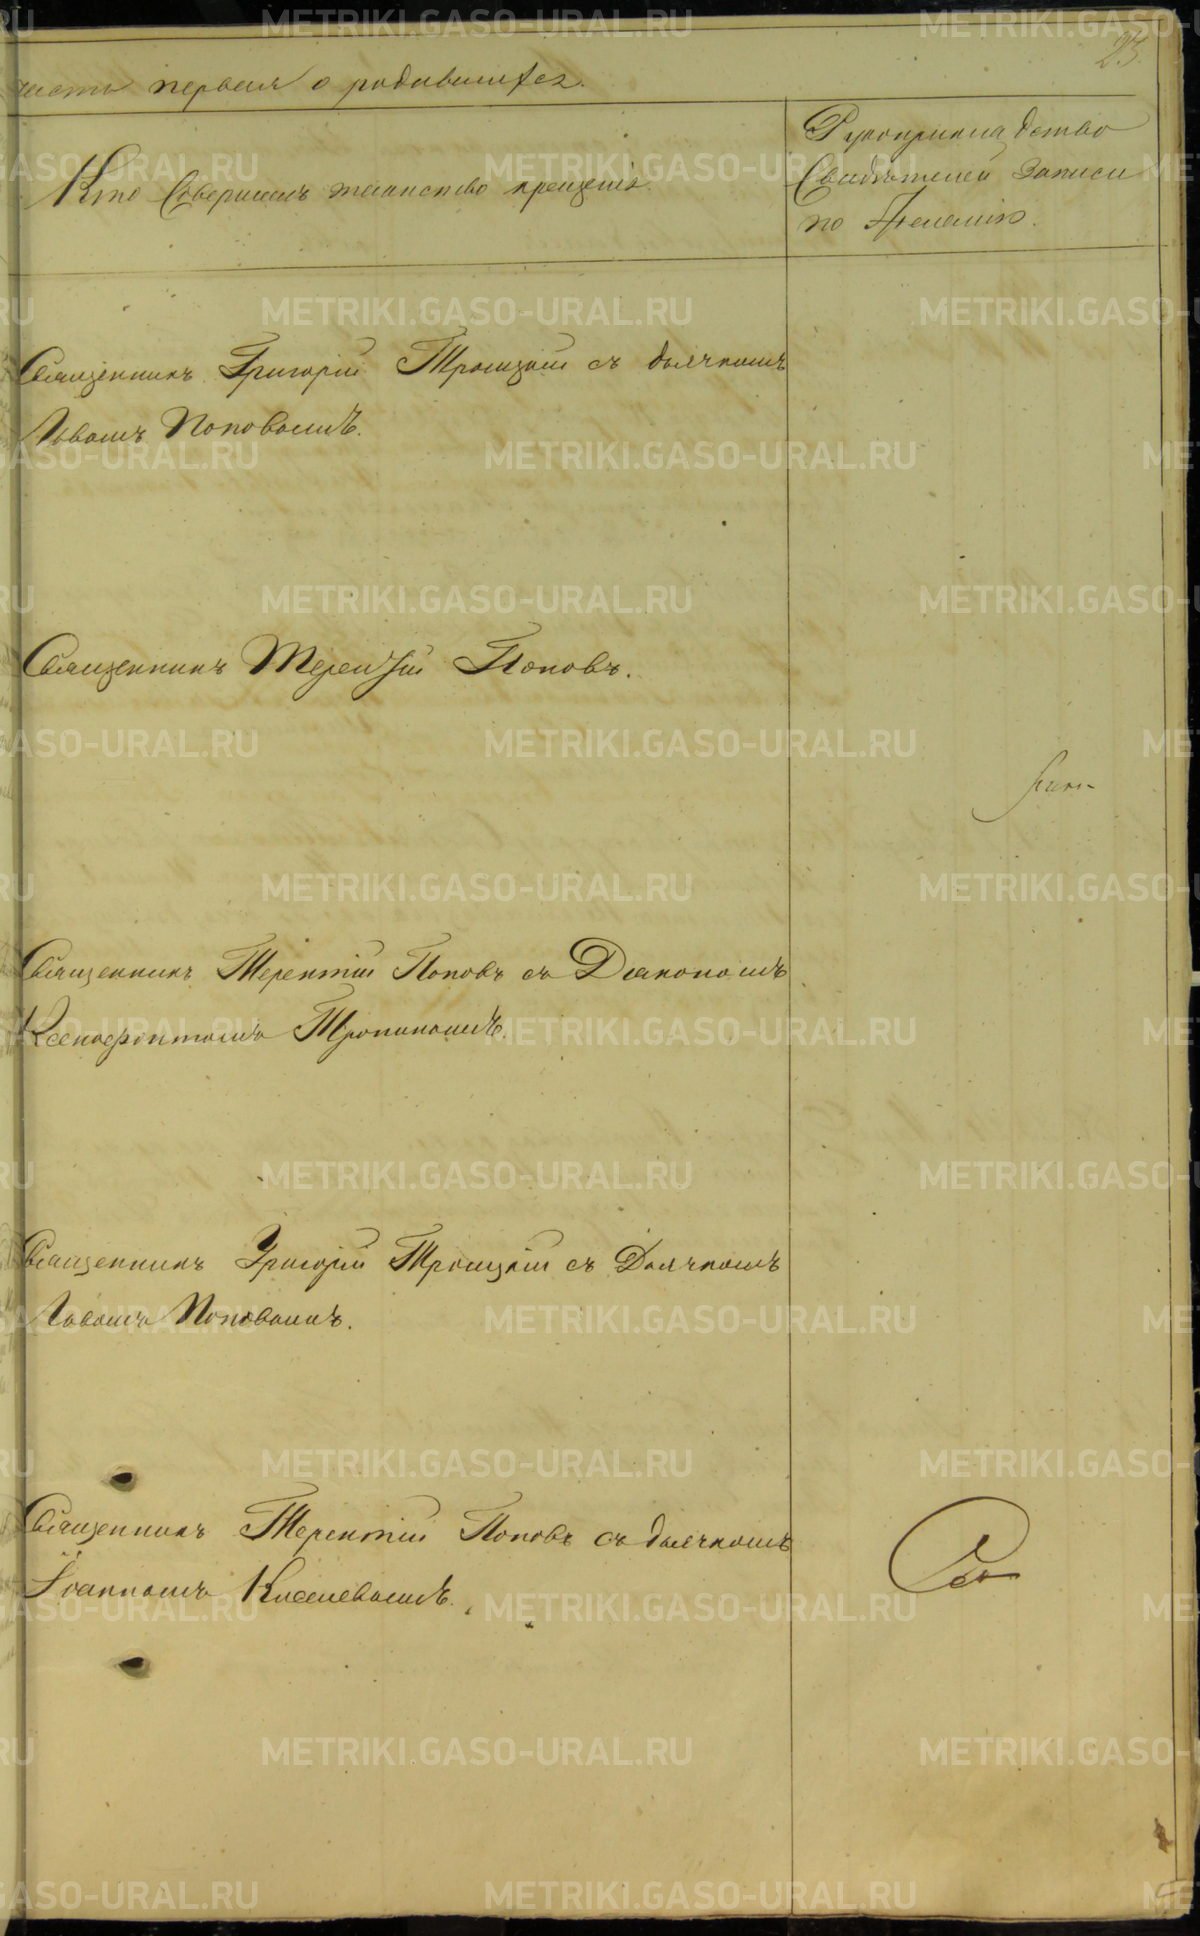 23.
часть первая о родившихся.
Кто Совершалъ таинство крещенія.
Рукоприкладство
Свидѣтелей записи
по желанію.
Священникъ Григорій Троицкій съ дьячкомъ
Львомъ Поповымъ.
Священникъ Терентій Поповъ.
Священникъ Терентій Поповъ съ Діакономъ
Ксенофонтомъ Тропинымъ.
Священникъ Григорій Троицкій съ Дьячкомъ
Львомъ Поповымъ.
Священникъ Терентій Поповъ съ дьячкомъ
Іоанномъ Киселевымъ.
METRIKI.GASO-URAL.RU